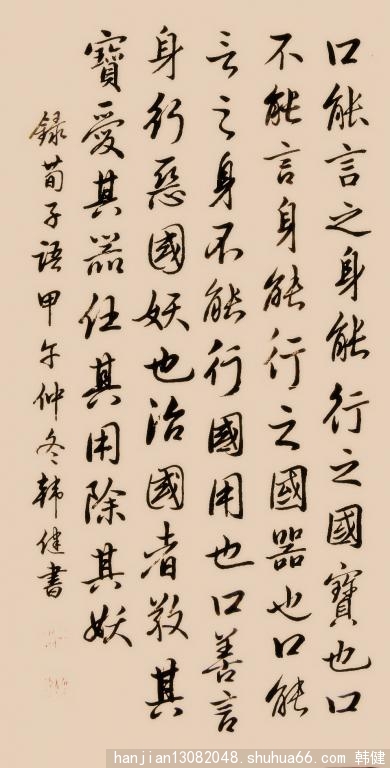 口能言之身能行之國寶也口
不能言身能行之國器也口能
言之身不能行國用也口善言
身行惡國妖也治國者敬其
寶愛其器任其用除其妖
録荀子語甲午仲冬韩健書
hanjian13082048.shuhua66.com 韩健